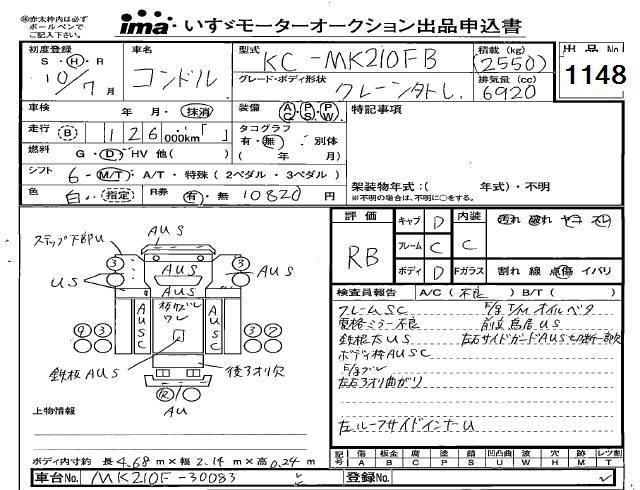 ㊟赤太枠内は必ず
ボールペンで
ご記入下さい。
ima いすゞモーターオークション出品申込書
初度登録
S・H・R
10/7月
車名
コンドル
型式
KC-MK210FB
積載(kg)
(2550)
グレード・ボディ形状
クレーン
排気量(cc)
6920
出品No
1148
車検
年 月・抹消
装備
AC・PS・PW
特記事項
走行
B
126,000km「 」
タコグラフ
有・無 別体
( 年 月)
燃料
G・D・HV 他( )
シフト
6-M/T・A/T・特殊(2ペダル・3ペダル)
架装物年式:( 年式)・不明
※不明の場合は、不明に○をする。
色
白 指定
R券
有・無 10820 円
評価
RB
キャブ D
フレーム C
ボディ D
内装 C
Fガラス
汚れ 破れ ヤコ スレ
割れ 線 点傷 イバリ
検査員報告
A/C(不良) B/T( )
フレームSC
F/g T/M オイルベタ
寛格ミラー不良
前立鳥居US
鉄板大US
左右サイドガードAUS切断一部欠
ボディ枠AUSC
左右3オリ曲がり
左ルーフサイドインナーU
ステップ下部PU
AUS
US
AUS
AUS
AUS
AUSC
AUSC
鉄板AUS
後3オリ欠
AU
上物情報
ボディ内寸約 長4.68m×幅2.14m×高0.24m
記号
傷 A
板金 B
腐 C
塗 P
錆 S
凹凸曲 U
波 W
穴 H
跡 M
レツ割 T
車台No. MK210F-30083
登録No.